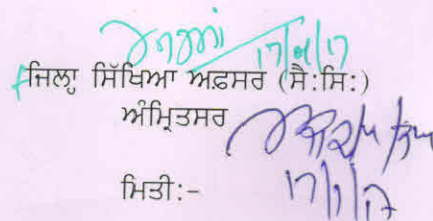 17/01/17
ਜਿਲ੍ਹਾ ਸਿੱਖਿਆ ਅਫ਼ਸਰ (ਸੈ:ਸਿ:)
ਅੰਮ੍ਰਿਤਸਰ
ਮਿਤੀ:-
17/1/17